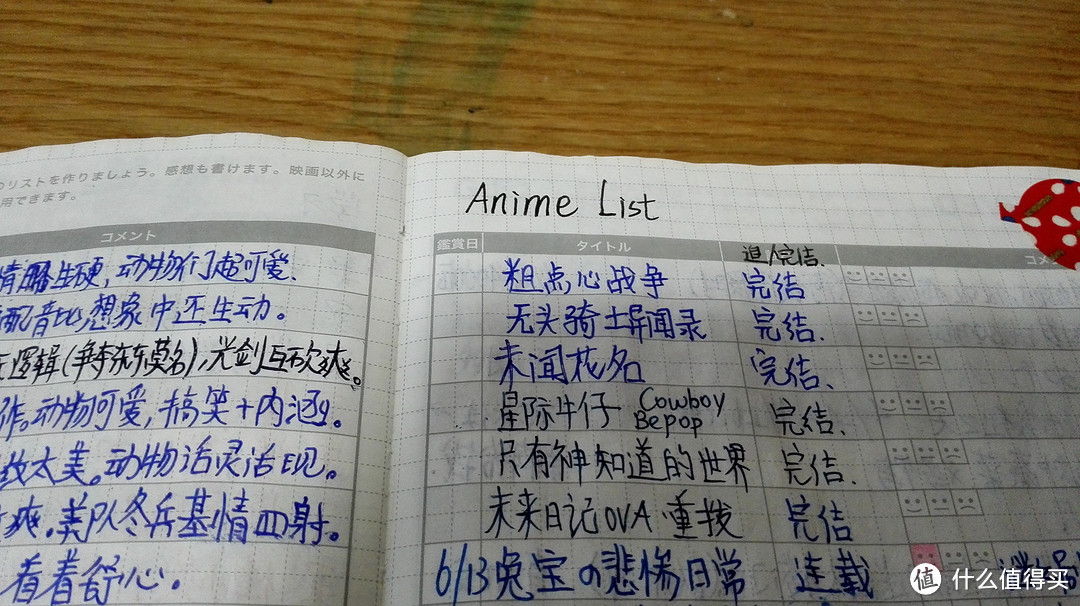 のリストを作りましょう。感想も書けます。映画以外に
用できます。
コメント
情略生硬,动物们超可爱.
配音比想象中还生动。
逻辑(争夺东东莫名),光剑互砍爽。
作。动物可爱,搞笑+内涵。
太美。动物活灵活现。
爽。美队冬兵基情四射。
看着舒心。
Anime List
鑑賞日 タイトル 追/完结. コメ
粗点心战争 完结
无头骑士异闻录 完结.
未闻花名 完结.
星际牛仔 Cowboy Bepop 完结.
只有神知道的世界 完结.
未来日记OVA·重拨 完结
6/13 兔宝の悲惨日常 连载
值 什么值得买